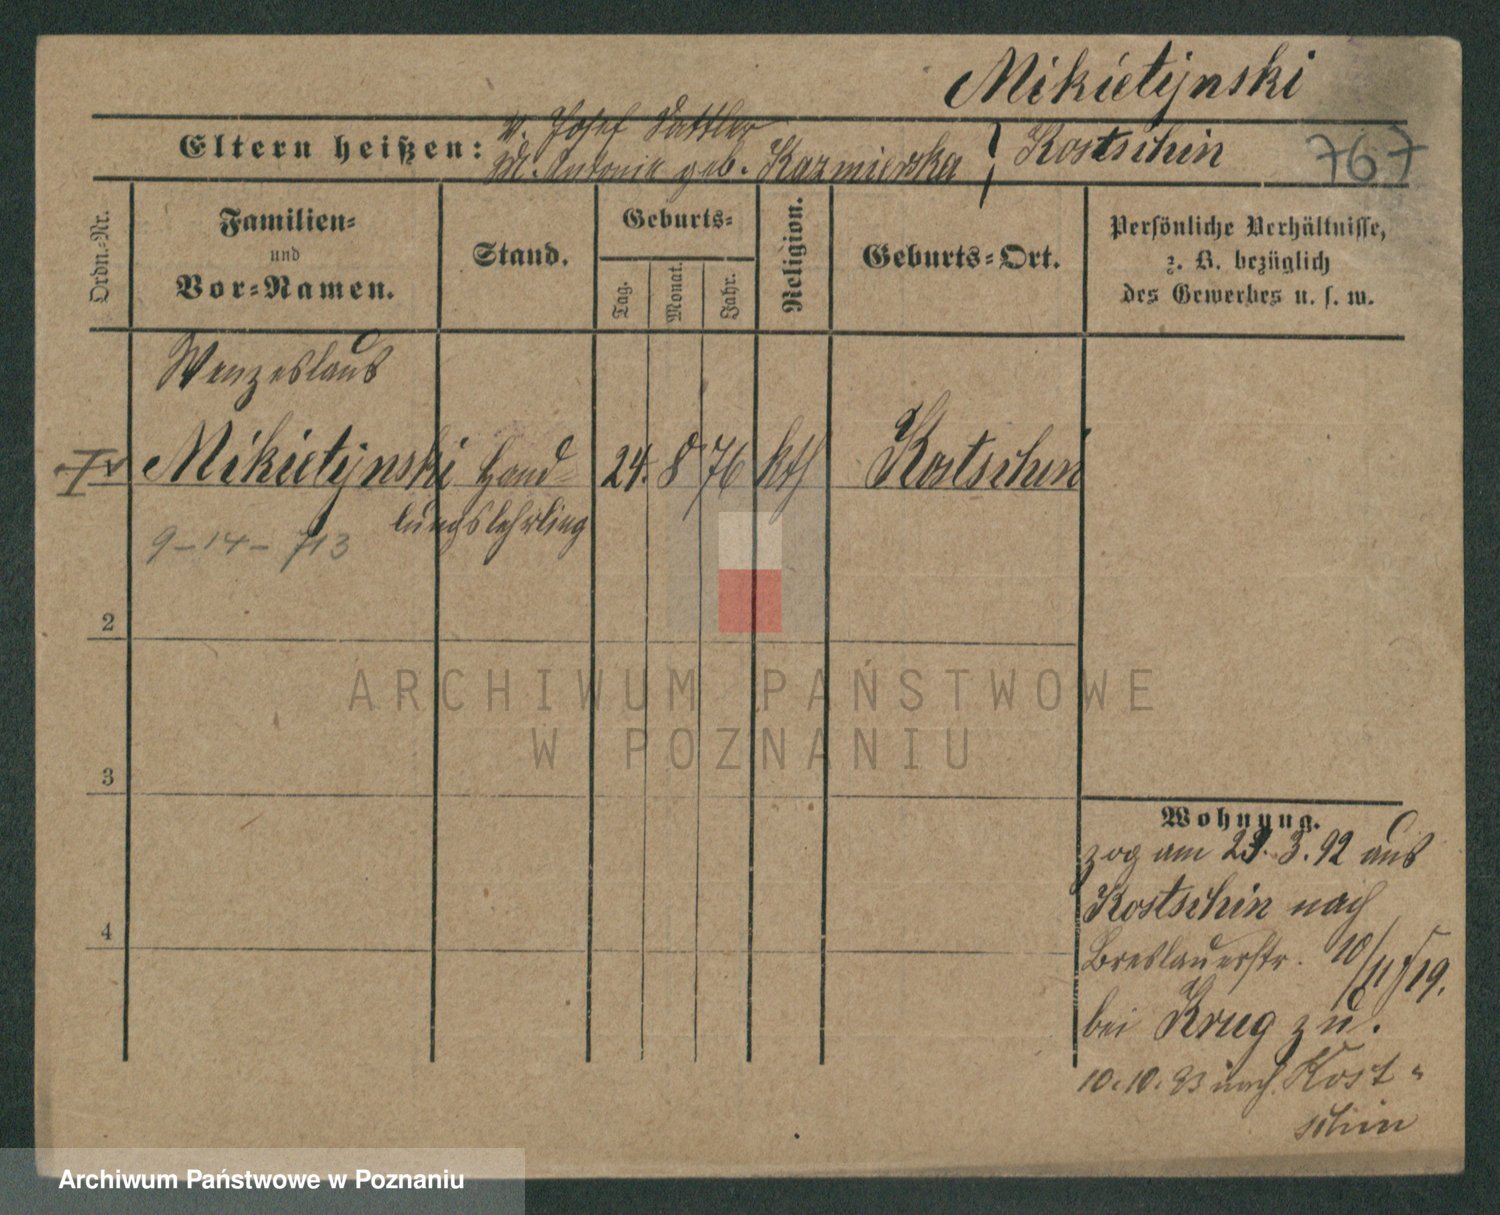 Mikietynski
Eltern heißen:
v. Josef Sattler
M. Antonie geb. Kazmierska
Kostschin
767
Ordn.-Nr.
Familien-
und
Vor-Namen.
Stand.
Geburts-
Tag.
Monat.
Jahr.
Religion.
Geburts-Ort.
Persönliche Verhältnisse,
z. B. bezüglich
des Gewerbes u. s. w.
Wenzeslaus
Mikietynski Hand- 24. 8 76 kth Kostschin
lungslehrling
9-14-713
2
ARCHIWUM PAŃSTWOWE
W POZNANIU
3
4
Wohnung.
zog am 29. 3. 92 aus
Kostschin nach
Breslauerstr. 10/11 19.
bei Krug zu.
10.10.93 nach Kost-
schin
Archiwum Państwowe w Poznaniu